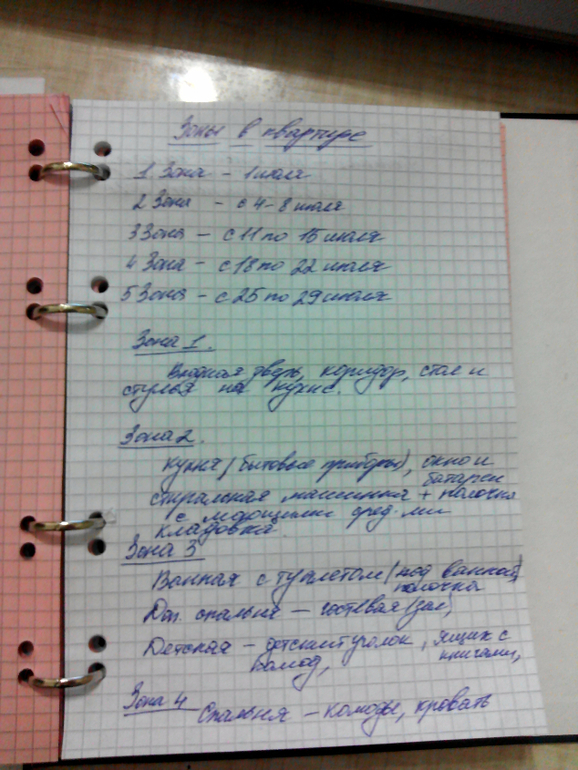 Зоны в квартире
1 Зона - 1 июля
2 Зона - с 4-8 июля
3 Зона - с 11 по 15 июля
4 Зона - с 18 по 22 июля
5 Зона - с 25 по 29 июля
Зона 1.
Входная дверь, коридор, стол и
стулья на кухне.
Зона 2.
кухня (бытовые приборы), окно и
батареи
стиральная машинка + полочка
с моющими сред-ми
кладовка.
Зона 3
Ванная с туалетом (под ванной,
полочка
Доп. спальня - гостевая (зал)
Детская - детский уголок, ящик с
книгами,
комод,
Зона 4
Спальня - комоды, кровать